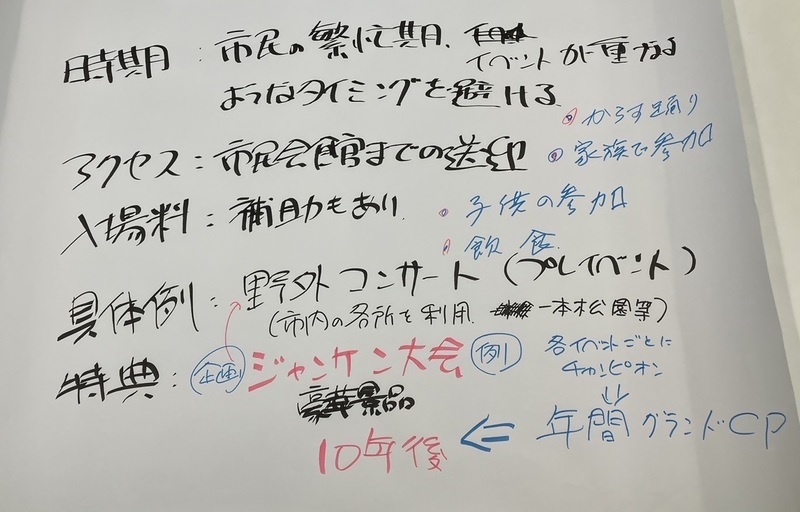 時期：市民の繁忙期、イベントが重なる
ようなタイミングを避ける
◎からす通り
アクセス：市民会館までの送迎
◎家族で参加
入場料：補助もあり
◦子供の参加
◦飲食
具体例：野外コンサート（プレイベント）
（市内の各所を利用 一本松園等）
特典：企画 ジャンケン大会 例
各イベントごとに
チャンピオン
⇓
年間グランドCP
⇐
10年後